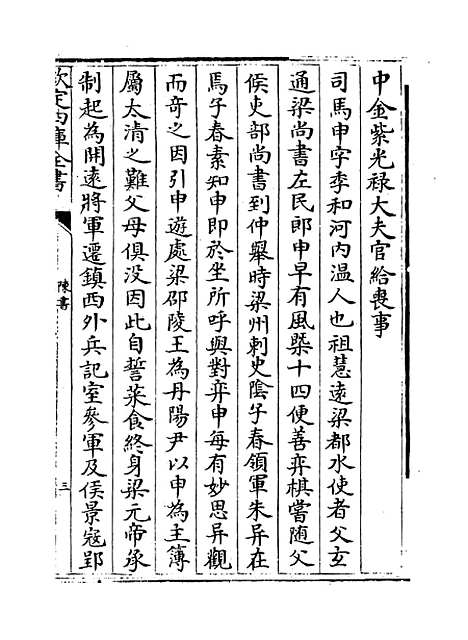 中金紫光禄大夫官給喪事
司馬申字季和河内温人也祖慧遠梁都水使者父玄
通梁尚書左民郎申早有風槩十四便善弈棋嘗随父
候吏部尚書到仲舉時梁州刺史陰子春領軍朱异在
馬子春素知申即於坐所呼與對弈申每有妙思异觀
而奇之因引申遊處梁邵陵王為丹陽尹以申為主簿
屬太清之難父母俱没因此自誓菜食終身梁元帝承
制起為開逺將軍遷鎮西外兵記室參軍及侯景寇郢
欽定四庫全書
陳書
三